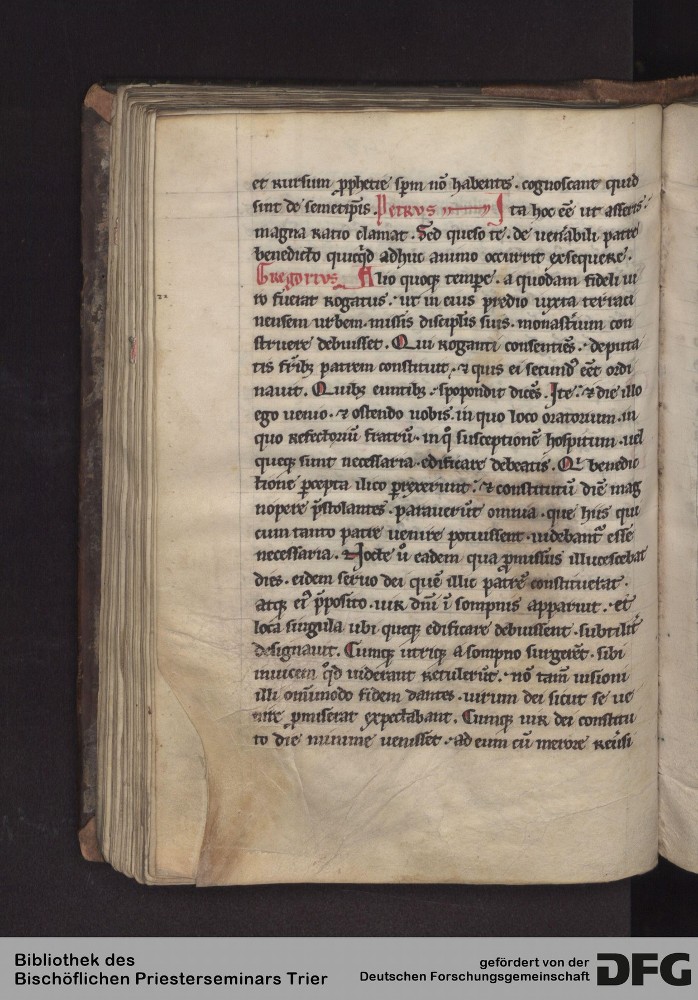 et rursum ꝓphetie sp̄m nō habentes · cognoscant quid
sint de semetip̄is. Petrus Ita hoc eē ut asseris·
magna ratio clamat . Sed queso te · de uen̄abili patre
benedicto quicq̄d adhuc animo occurrit exsequere .
Gregorius Alio quoqꝫ tempe · a quodam fideli ui
ro fuerat rogatus · ut in eius predio iuxta terraci
nensem urbem · missis discipl̄is suis · monastm̄ con
struere debuisset . Qui roganti consentiēs · deputa
tis fr̄ibꝫ patrem constituit · ⁊ quis ei secundꝰ eēt ordi
nauit . Quibꝫ euntibꝫ · spopondit dicēs . Ite · ⁊ die illo
ego uenio · ⁊ ostendo uobis · in quo loco oratorium · in
quo refectoriū fratrū · in q̊ susceptionē hospitum · uel
queqꝫ sunt necessaria · edificare debeatis . Qi benedic
tione ꝑcepta ilico ꝑrexerunt · ⁊ constitutū diē mag
nopere p̄stolantes · parauerūt omnia · que hiis qui
cum tanto patre uenire potuissent · uidebantᷣ esse
necessaria . Nocte u̇ eadem qua ꝓmissus illucescebat
dies · eidem seruo dei quē illic patrē constituerat ·
atqꝫ eiꝰ p̄posito · uir dn̄i ī sompnis apparuit · et
loca singula ubi queqꝫ edificare debuissent · subtilit̄
designauit . Cumqꝫ utriqꝫ a sompno surgerēt · sibi
inuicem q̊d uiderant retulerūt · nō tam̄ uisioni
illi om̄imodo fidem dantes · uirum dei sicut se ue
nire ꝓmiserat expectabant . Cumqꝫ uir dei constitu
to die minime uenisset · ad eum cū merore reūsi
Bibliothek des
Bischöflichen Priesterseminars Trier
gefördert von der
Deutschen Forschungsgemeinschaft
DFG